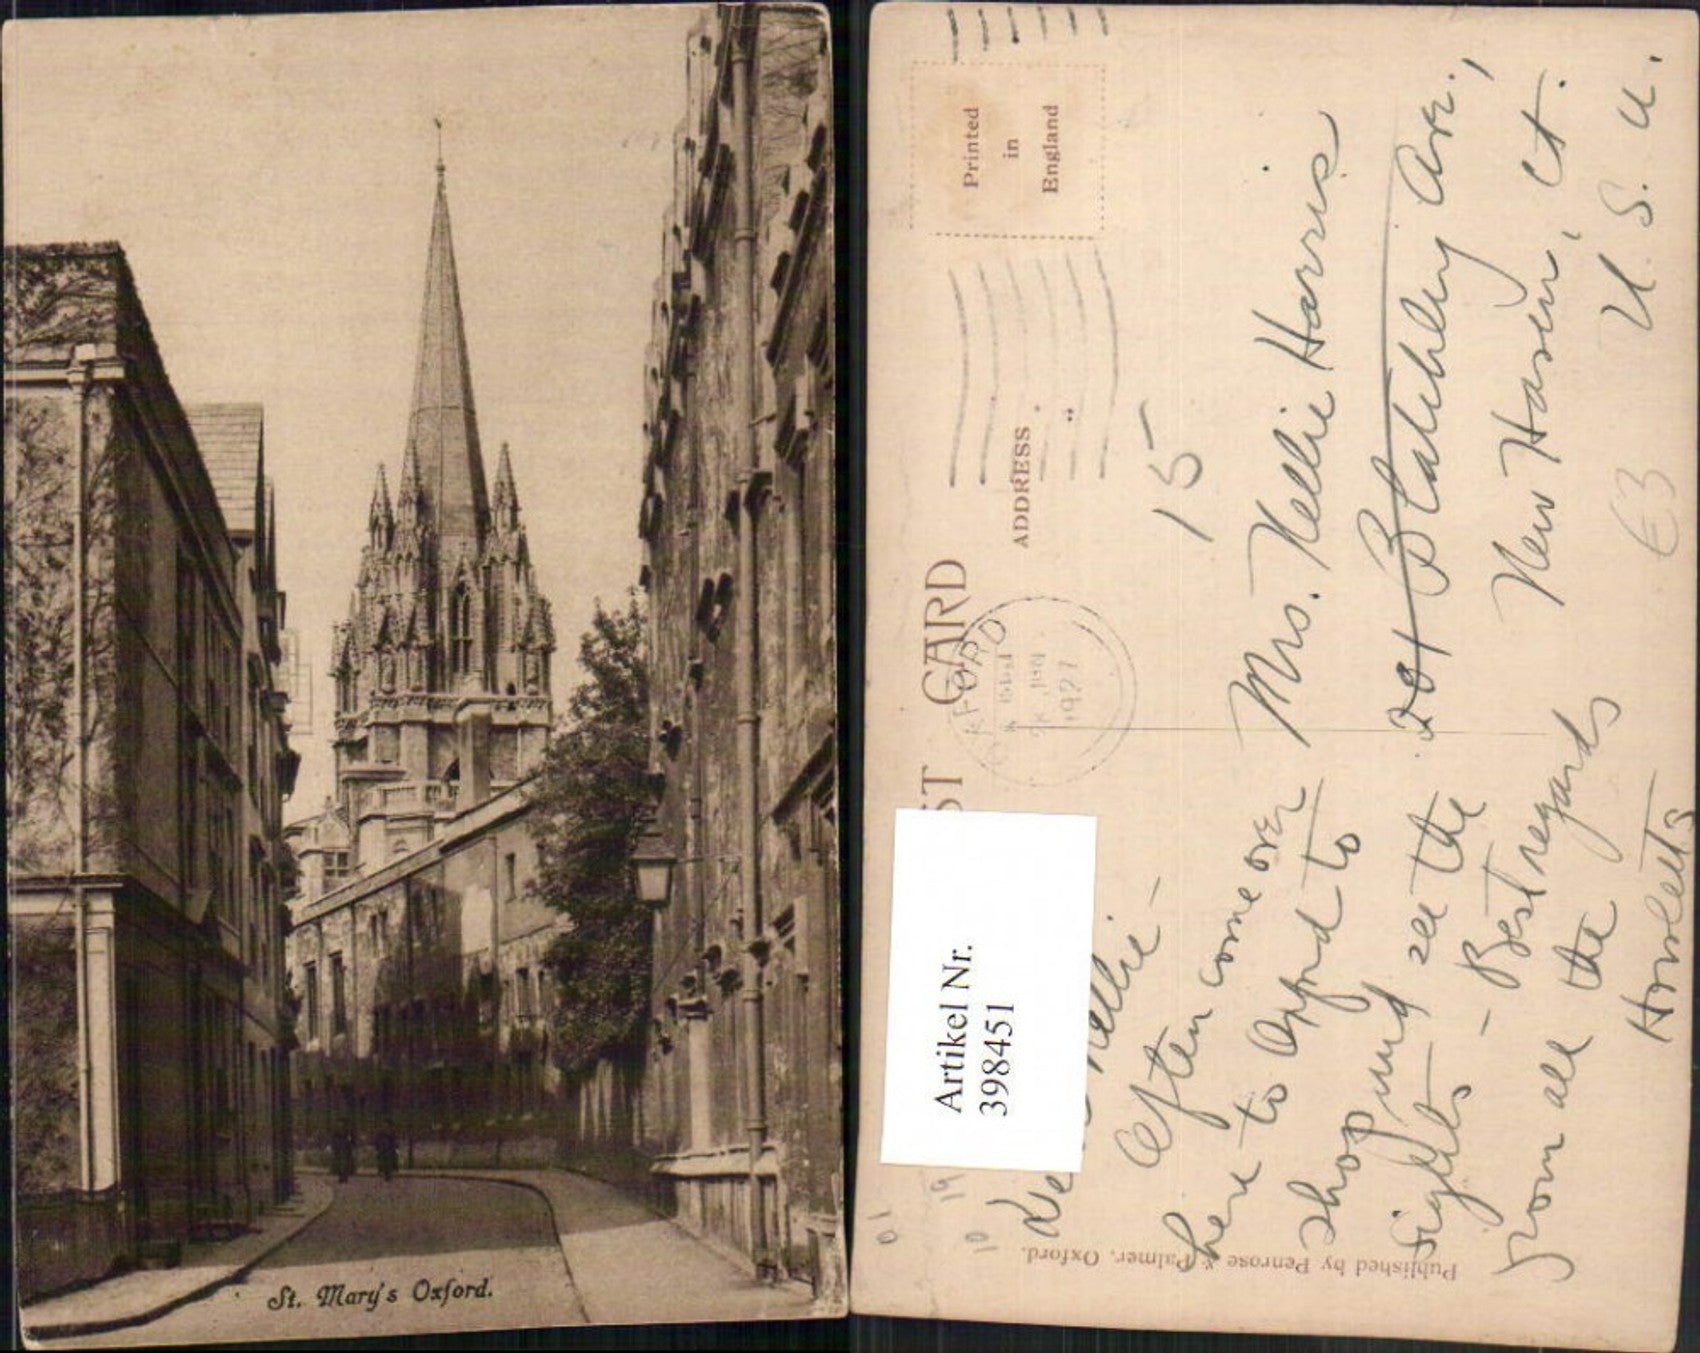 St. Mary's Oxford.
POST CARD
ADDRESS
Printed
in
England
OXFORD
1927
15
Artikel Nr.
398451
Nellie –
Often come over
here to Oxford to
shop and see the
sights – Best regards
from all the
Howletts
Mrs. Nellie Harris
201 Blatchley Ave.,
New Haven, Ct.
U. S. A.
E3
10
19
Published by Penrose & Palmer, Oxford.